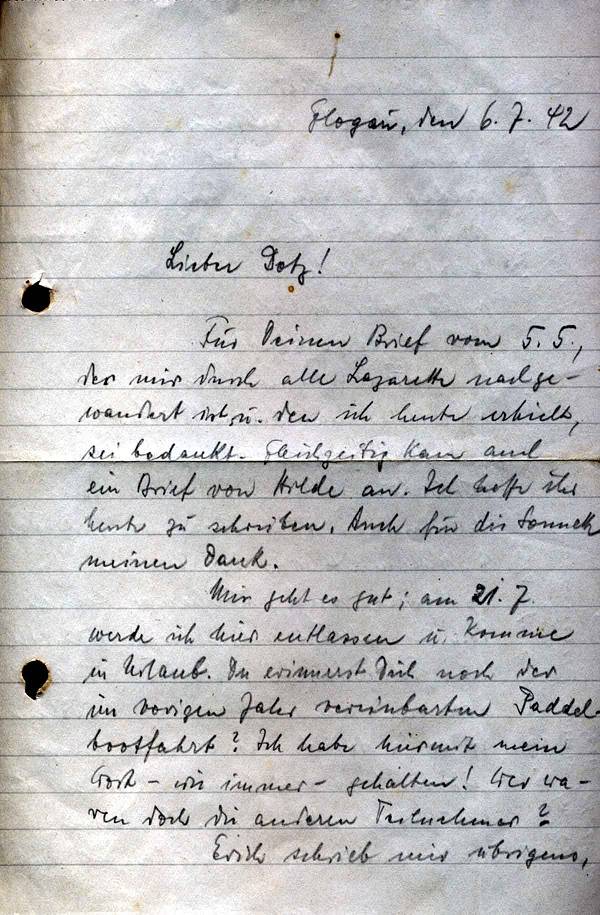 Glogau, den 6. 7. 42
Lieber Dotz!
Für Deinen Brief vom 5. 5.,
der mir durch alle Lazarette nachge-
wandert ist, u. den ich heute erhielt,
sei bedankt. Gleichzeitig kam auch
ein Brief von Hilde an. Ich hoffe ihr
heute zu schreiben. Auch für die Sonette
meinen Dank.
Mir geht es gut; am 21. 7.
werde ich hier entlassen u. komme
in Urlaub. Du erinnerst Dich noch der
im vorigen Jahr vereinbarten Paddel-
bootfahrt? Ich habe hiermit mein
Wort – wie immer – gehalten! Wer wa-
ren doch die anderen Teilnehmer?
Erich schrieb mir übrigens,